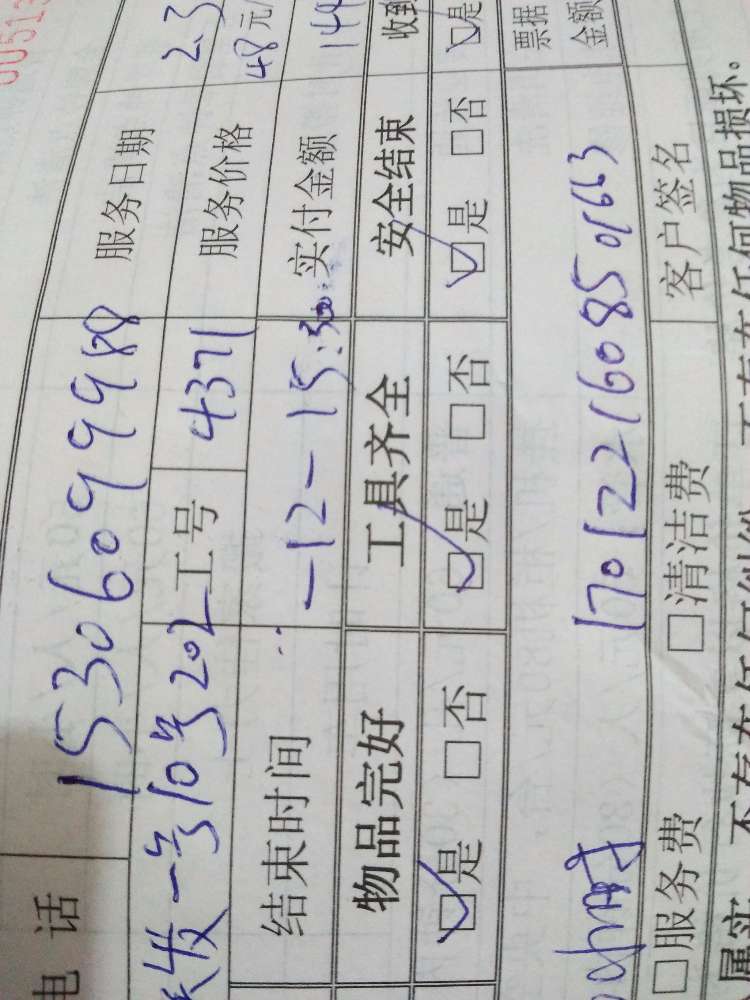 电话 15306099988 服务日期 2.3
发一号10号202 工号 4371 服务价格 48元/
结束时间 -12-15:30 实付金额 144
物品完好 工具齐全 安全结束 收到
☑是 □否 ☑是 □否 ☑是 □否 ☑是
票据金额
1701221608501663
□服务费 □清洁费 客户签名
属实，不存在任何纠纷，不存在任何物品损坏。